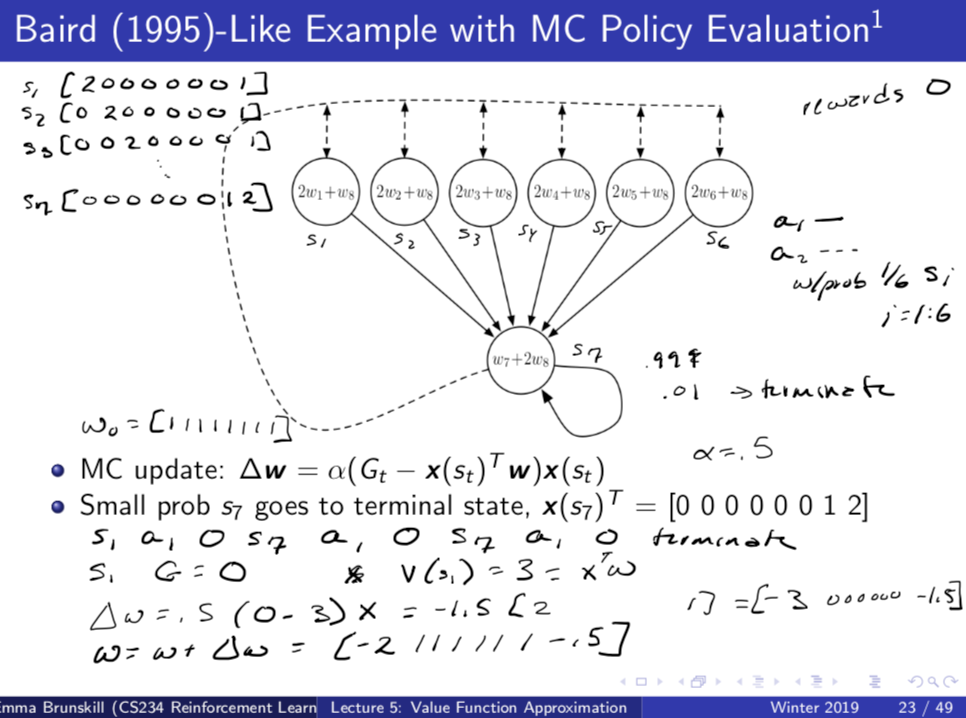 Baird (1995)-Like Example with MC Policy Evaluation¹
s₁ [2 0 0 0 0 0 0 1]
s₂ [0 2 0 0 0 0 0 1]
s₃ [0 0 2 0 0 0 0 1]
⋱
s₇ [0 0 0 0 0 0 1 2]
rewards 0
2w₁+w₈ 2w₂+w₈ 2w₃+w₈ 2w₄+w₈ 2w₅+w₈ 2w₆+w₈
s₁ s₂ s₃ s₄ s₅ s₆
a₁ —
a₂ ---
w/prob 1/6 sᵢ
i=1:6
w₇+2w₈ s₇
.99
.01 → terminate
w₀ = [1 1 1 1 1 1 1 1]
α = .5
MC update: Δw = α(Gₜ − x(sₜ)ᵀw)x(sₜ)
Small prob s₇ goes to terminal state, x(s₇)ᵀ = [0 0 0 0 0 0 1 2]
s₁ a₁ 0 s₇ a₁ 0 s₇ a₁ 0 terminate
s₁ G = 0 V(s₁) = 3 = xᵀw
Δw = .5 (0 - 3) x = -1.5 [2 1] = [-3 0 0 0 0 0 0 -1.5]
w = w + Δw = [-2 1 1 1 1 1 1 -.5]
Emma Brunskill (CS234 Reinforcement Learn Lecture 5: Value Function Approximation Winter 2019 23 / 49